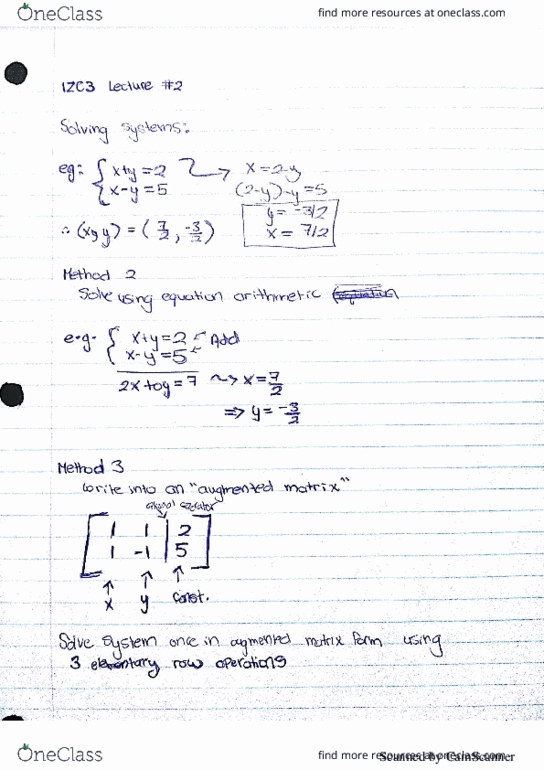 OneClass find more resources at oneclass.com
1ZC3 Lecture #2
Solving systems:
eg: { x+y=2 → x=2-y
{ x-y=5 (2-y)-y=5
y= -3/2
∴ (x,y) = (7/2, -3/2) x= 7/2
Method 2
Solve using equation arithmetic
e.g. { x+y=2 ← Add
{ x-y=5 ←
2x+0y=7 ~> x=7/2
=> y=-3/2
Method 3
Write into an "augmented matrix"
[ 1 1 | 2 ]
[ 1 -1 | 5 ]
↑ ↑ ↑
x y const.
Solve system once in augmented matrix form using
3 elementary row operations
OneClass find more resources at oneclass.com
Scanned by CamScanner